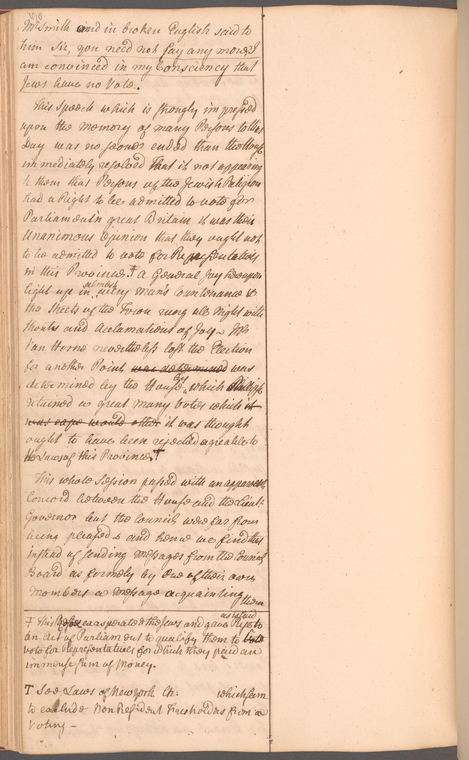 Mr Smith and in broken English said to
him Sir, you need not say any more I
am convinced in my Consciency that
Jews have no Vote.
This Speech which is strongly impressed
upon the memory of many Persons to this
Day was no sooner ended than the House
immediately resolved that it not appearing
to them that Persons of the Jewish Religion
had a Right to be admitted to vote for
Parliament in great Britain it was their
Unanimous Opinion that they ought not
to be admitted to vote for Representatives
in this Province.† A General Joy hereupon
light up in almost every man's Countenance &
the Streets of the Town rung all Night with
Shouts and Acclamations of Joy. Mr
Van Horne nevertheless lost the Election
for another Point was determined was
determined by the House by which
retained a great many Votes which it
was it was thought
ought to have been rejected agreable to
the Laws of this Province.†
This whole Session passed with an apparent
Concord between the House and the Lieut.
Governor but the Council were far from
being pleased & and hence we find that
instead of sending Messages from the Council
Board as formely by one of their own
Members a message acquainting them
† This exasperated the Jews and gave Rise as is said to
an Act of Parliament to qualify them to Vote
vote for Representatives for which they paid an
immense sum of Money.
† See Laws of New York Ch: which seem
to exclude Non Resident Freeholders from a
Voting —